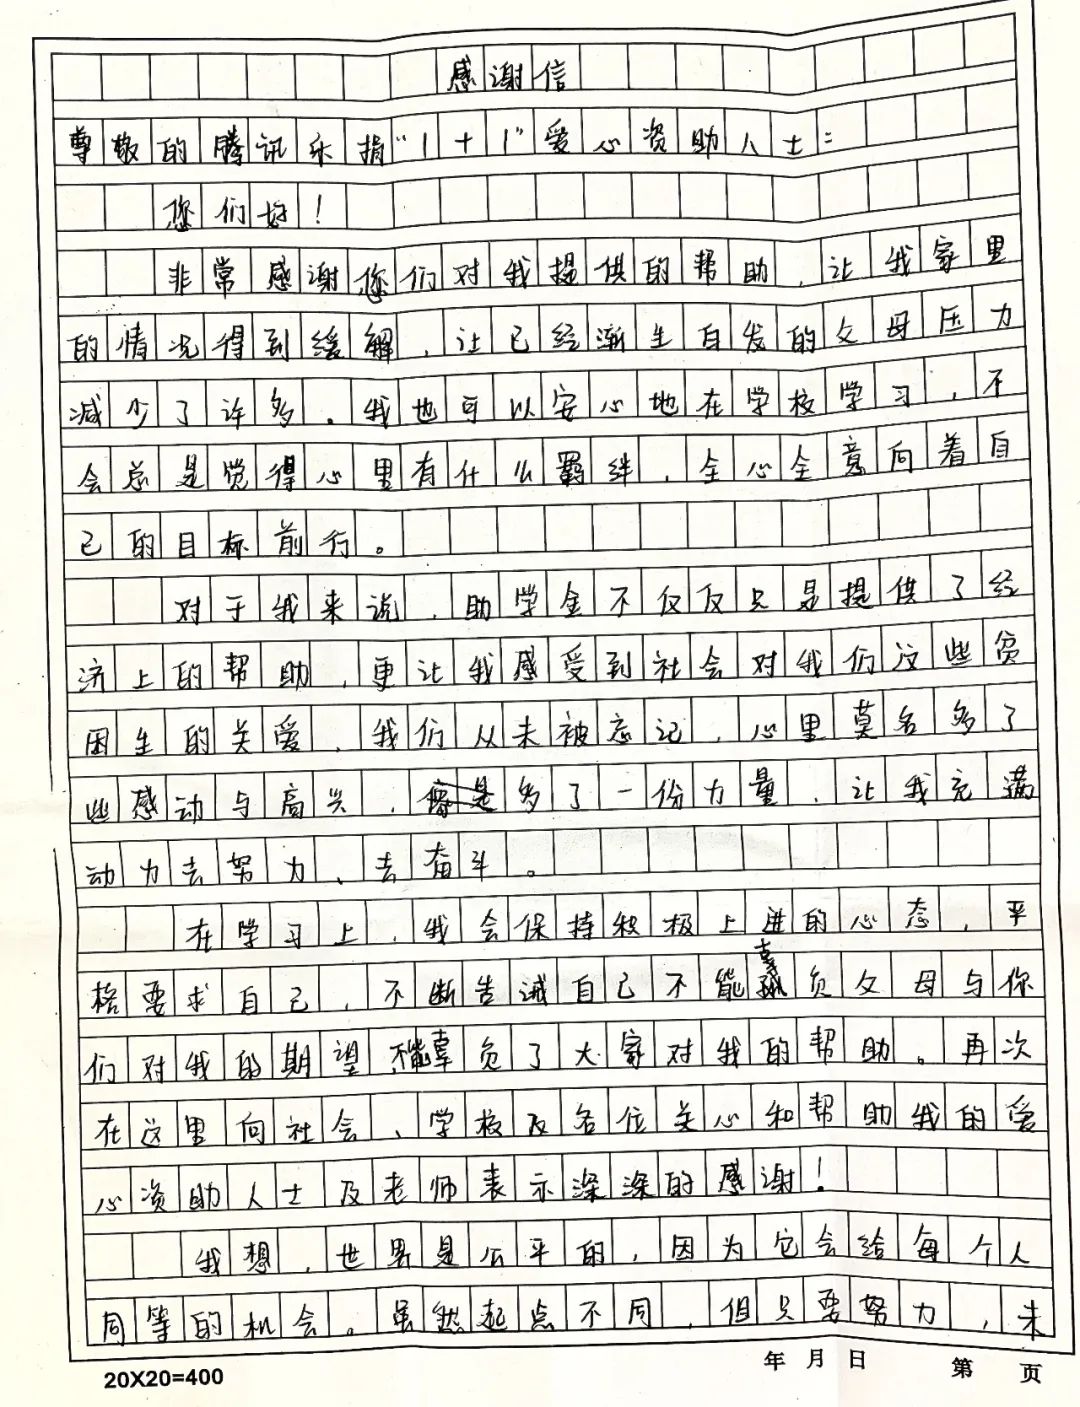 感谢信
尊敬的腾讯乐捐“1+1”爱心资助人士：
您们好！
非常感谢您们对我提供的帮助，让我家里
的情况得到缓解，让已经渐生白发的父母压力
减少了许多。我也可以安心地在学校学习，不
会总是觉得心里有什么羁绊，全心全意向着自
己的目标前行。
对于我来说，助学金不仅仅只是提供了经
济上的帮助，更让我感受到社会对我们这些贫
困生的关爱，我们从未被忘记，心里莫名多了
些感动与高兴，多了一份力量，让我充满
动力去努力、去奋斗。
在学习上，我会保持积极上进的心态，平
格要求自己，不断告诫自己不能辜负父母与你
们对我的期望，不能辜负了大家对我的帮助。再次
在这里向社会、学校及各位关心和帮助我的爱
心资助人士及老师表示深深的感谢！
我想，世界是公平的，因为它会给每个人
同等的机会。虽然起点不同，但只要努力，未
20X20=400
年 月 日 第 页